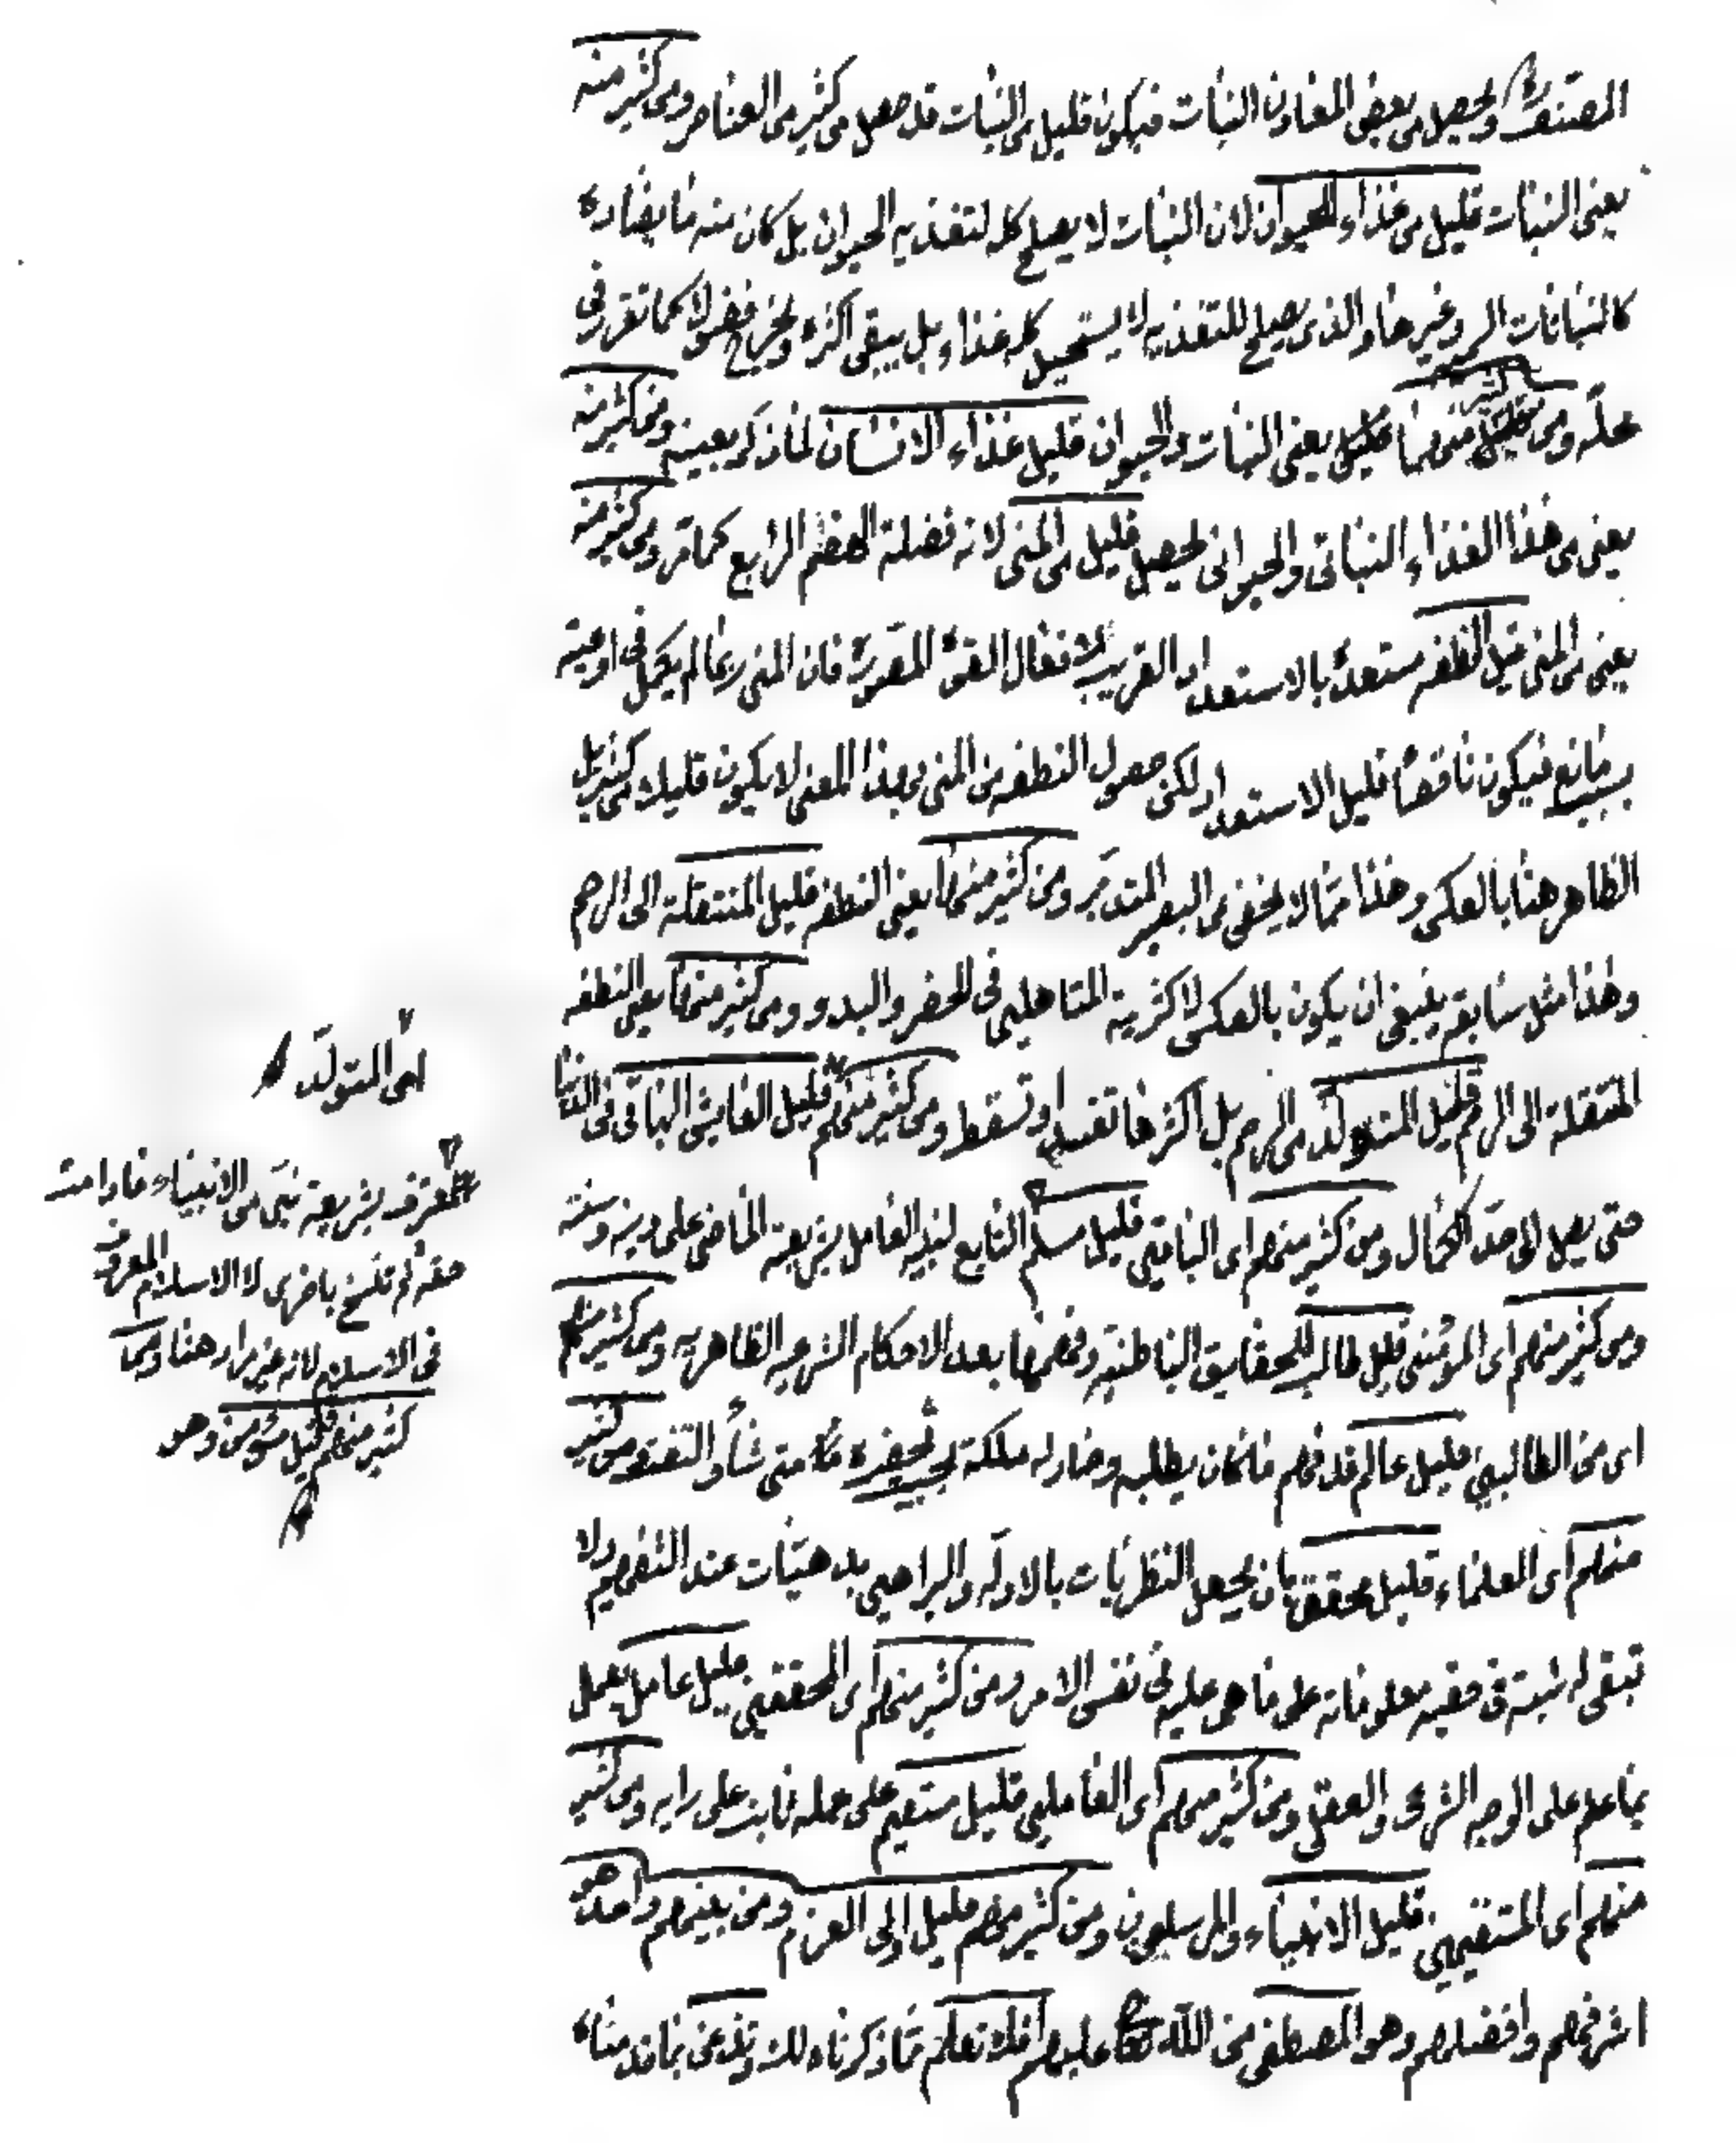 المصنفة ويحصل من بعض المعادن النبات فيكون قليل من النبات قد حصل من كثير من العناصر ومن كثير منه
يعنى النبات قليل من غذاء للحيوان لان النبات لا يصلح كله لتغذيه الحيوان بل كان منه ما يضاده
كالنباتات السم وغيرها والذى يصلح للتغذيه لا يستحيل كله غذاء بل يبقى اكثره ويخرج فضولا كما تقرر فى
محله ومن كثير منهما يعنى النبات والحيوان قليل غذاء الانسان لما ذكر بعينه ومن كثير منه
يعنى من هذا الغذاء النباتى والحيوانى يحصل قليل من المنى لانه فضلة الهضم الرابع كما مر ومن كثير منه
يعنى من المنى قليل نطفه مستعدة بالاستعداد القريب لافعال القوة المصورة فان المنى ربما لم يكمل فى اوعيته
بسبب مانع فيكون ناقصا قليل الاستعداد لكن حصول النطفه من المنى بهذا المعنى لا يكون قليلا من كثير بل
الظاهر هنا بالعكس وهذا مما لا يخفى من البصير المتدبر ومن كثير منها يعنى النطفه قليل المنتقلة الى الرحم
وهذا مثل سابقه ينبغى ان يكون بالعكس لاكثرية المتاهلين فى الحضر والبدو ومن كثير منها يعنى النطفه
المنتقلة الى الرحم قليل المتولد من الرحم بل اكثرها تفسد او تسقط ومن كثير منهم قليل العايش الباقى فى الدنيا
حتى يصل الى حد الكمال ومن كثير منهم اى الباقين قليل مسلم التابع لنبيه العامل بشريعة الماضى على دينه وسنته
ومن كثير منهم اى المؤمنين قليل طالب للحقايق الباطنيه وفهمها بعد الاحكام الشرعيه الظاهريه ومن كثير منهم
اى من الطالبين قليل عالم قد فهم ما كان يطلبه وصار له ملكة بحيث يحضره متى شاء والتفت ومن كثير
منهم اى العلماء قليل محقق بان يجعل النظريات بالادله والبراهين بديهيات عند التفهيم ولا
تبقى له شبهة فى حقيه معلوماته على ما هى عليه فى نفس الامر ومن كثير منهم اى المحققين قليل عامل يعمل
بما علم على الوجه الشرعى والعقلى ومن كثير منهم اى العاملين قليل مستقيم على عمله ثابت على رايه ومن كثير
منهم اى المستقيمين قليل الانبياء والمرسلون ومن كثير منهم قليل اولى العزم ومن بينهم واحد هو
اشرفهم وافضلهم وهو المصطفى من الله تعا عليهم افلا تعلم مما ذكرناه لك وتذعن بما قدمناه
اى المتولد
معترف بشريعة نبى من الانبياء مادامت
حقه لم تنسخ باخرى لا الاسلام المعروف
فى الاسلام لانه غير مراد هنا ومن
كثير منهم قليل مؤمن وهو